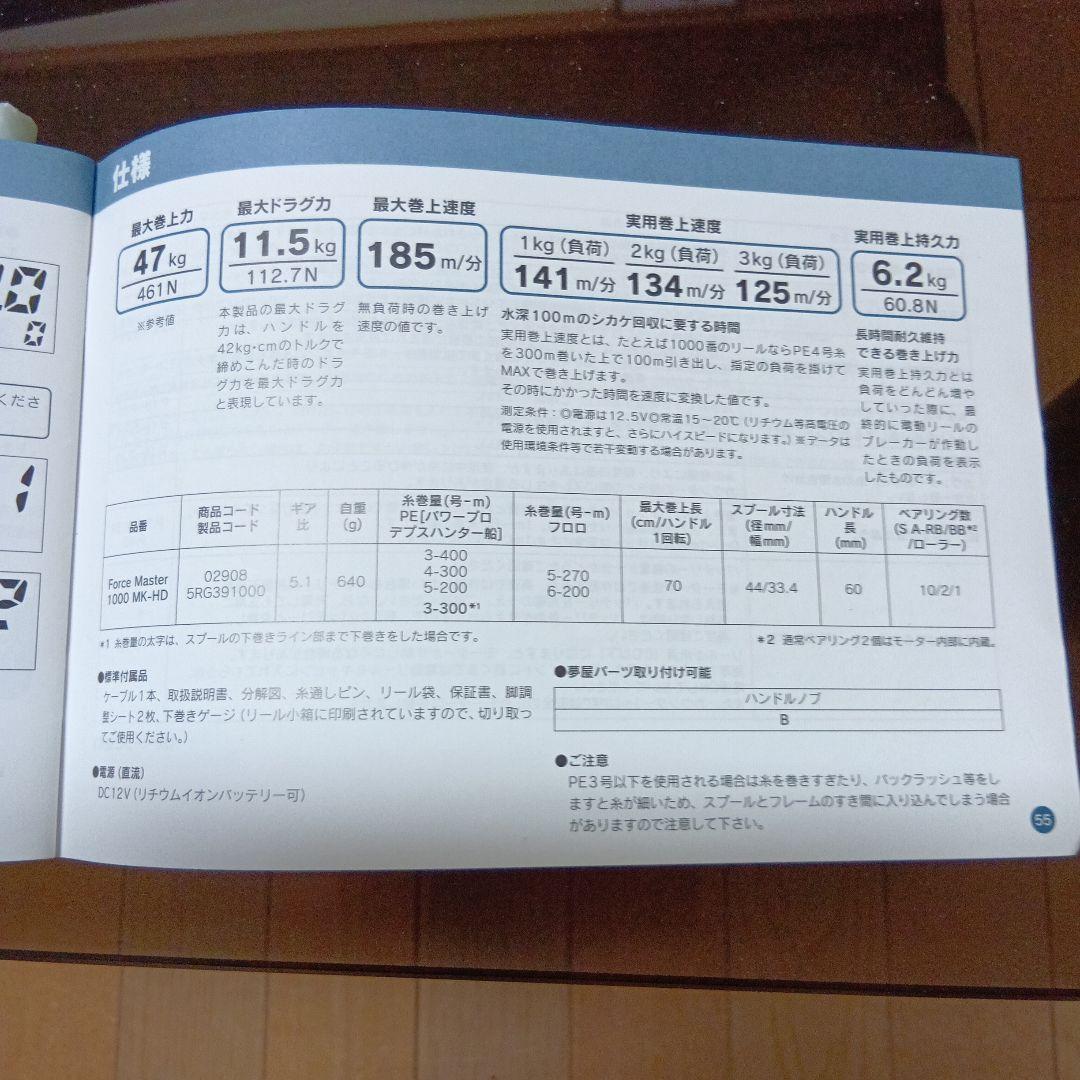 仕様
最大巻上力
47kg
461N
※参考値
最大ドラグ力
11.5kg
112.7N
本製品の最大ドラグ
力は、ハンドルを
42kg・cmのトルクで
締めこんだ時のドラ
グ力を最大ドラグ力
と表現しています。
最大巻上速度
185m/分
無負荷時の巻き上げ
速度の値です。
実用巻上速度
1kg(負荷) 2kg(負荷) 3kg(負荷)
141m/分 134m/分 125m/分
水深100mのシカケ回収に要する時間
実用巻上速度とは、たとえば1000番のリールならPE4号糸
を300m巻いた上で100m引き出し、指定の負荷を掛けて
MAXで巻き上げます。
その時にかかった時間を速度に変換した値です。
測定条件：◎電源は12.5V◎常温15〜20℃(リチウム等高電圧の
電源を使用されますと、さらにハイスピードになります。)※データは
使用環境条件等で若干変動する場合があります。
実用巻上持久力
6.2kg
60.8N
長時間耐久維持
できる巻き上げ力
実用巻上持久力とは
負荷をどんどん増や
していった際に、最
終的に電動リールの
ブレーカーが作動し
たときの負荷を表示
したものです。
品番
商品コード
製品コード
ギア
比
自重
(g)
糸巻量(号-m)
PE[パワープロ
デプスハンター船]
糸巻量(号-m)
フロロ
最大巻上長
(cm/ハンドル
1回転)
スプール寸法
(径mm/
幅mm)
ハンドル
長
(mm)
ベアリング数
(S A-RB/BB*2
/ローラー)
Force Master
1000 MK-HD
02908
5RG391000
5.1
640
3-400
4-300
5-200
3-300*1
5-270
6-200
70
44/33.4
60
10/2/1
*1 糸巻量の太字は、スプールの下巻きライン部まで下巻きをした場合です。
*2 通常ベアリング2個はモーター内部に内蔵。
●標準付属品
ケーブル1本、取扱説明書、分解図、糸通しピン、リール袋、保証書、脚調
整シート2枚、下巻きゲージ(リール小箱に印刷されていますので、切り取っ
てご使用ください。)
●電源(直流)
DC12V(リチウムイオンバッテリー可)
●夢屋パーツ取り付け可能
ハンドルノブ
B
●ご注意
PE3号以下を使用される場合は糸を巻きすぎたり、バックラッシュ等をし
ますと糸が細いため、スプールとフレームのすき間に入り込んでしまう場合
がありますので注意して下さい。
55
くださ